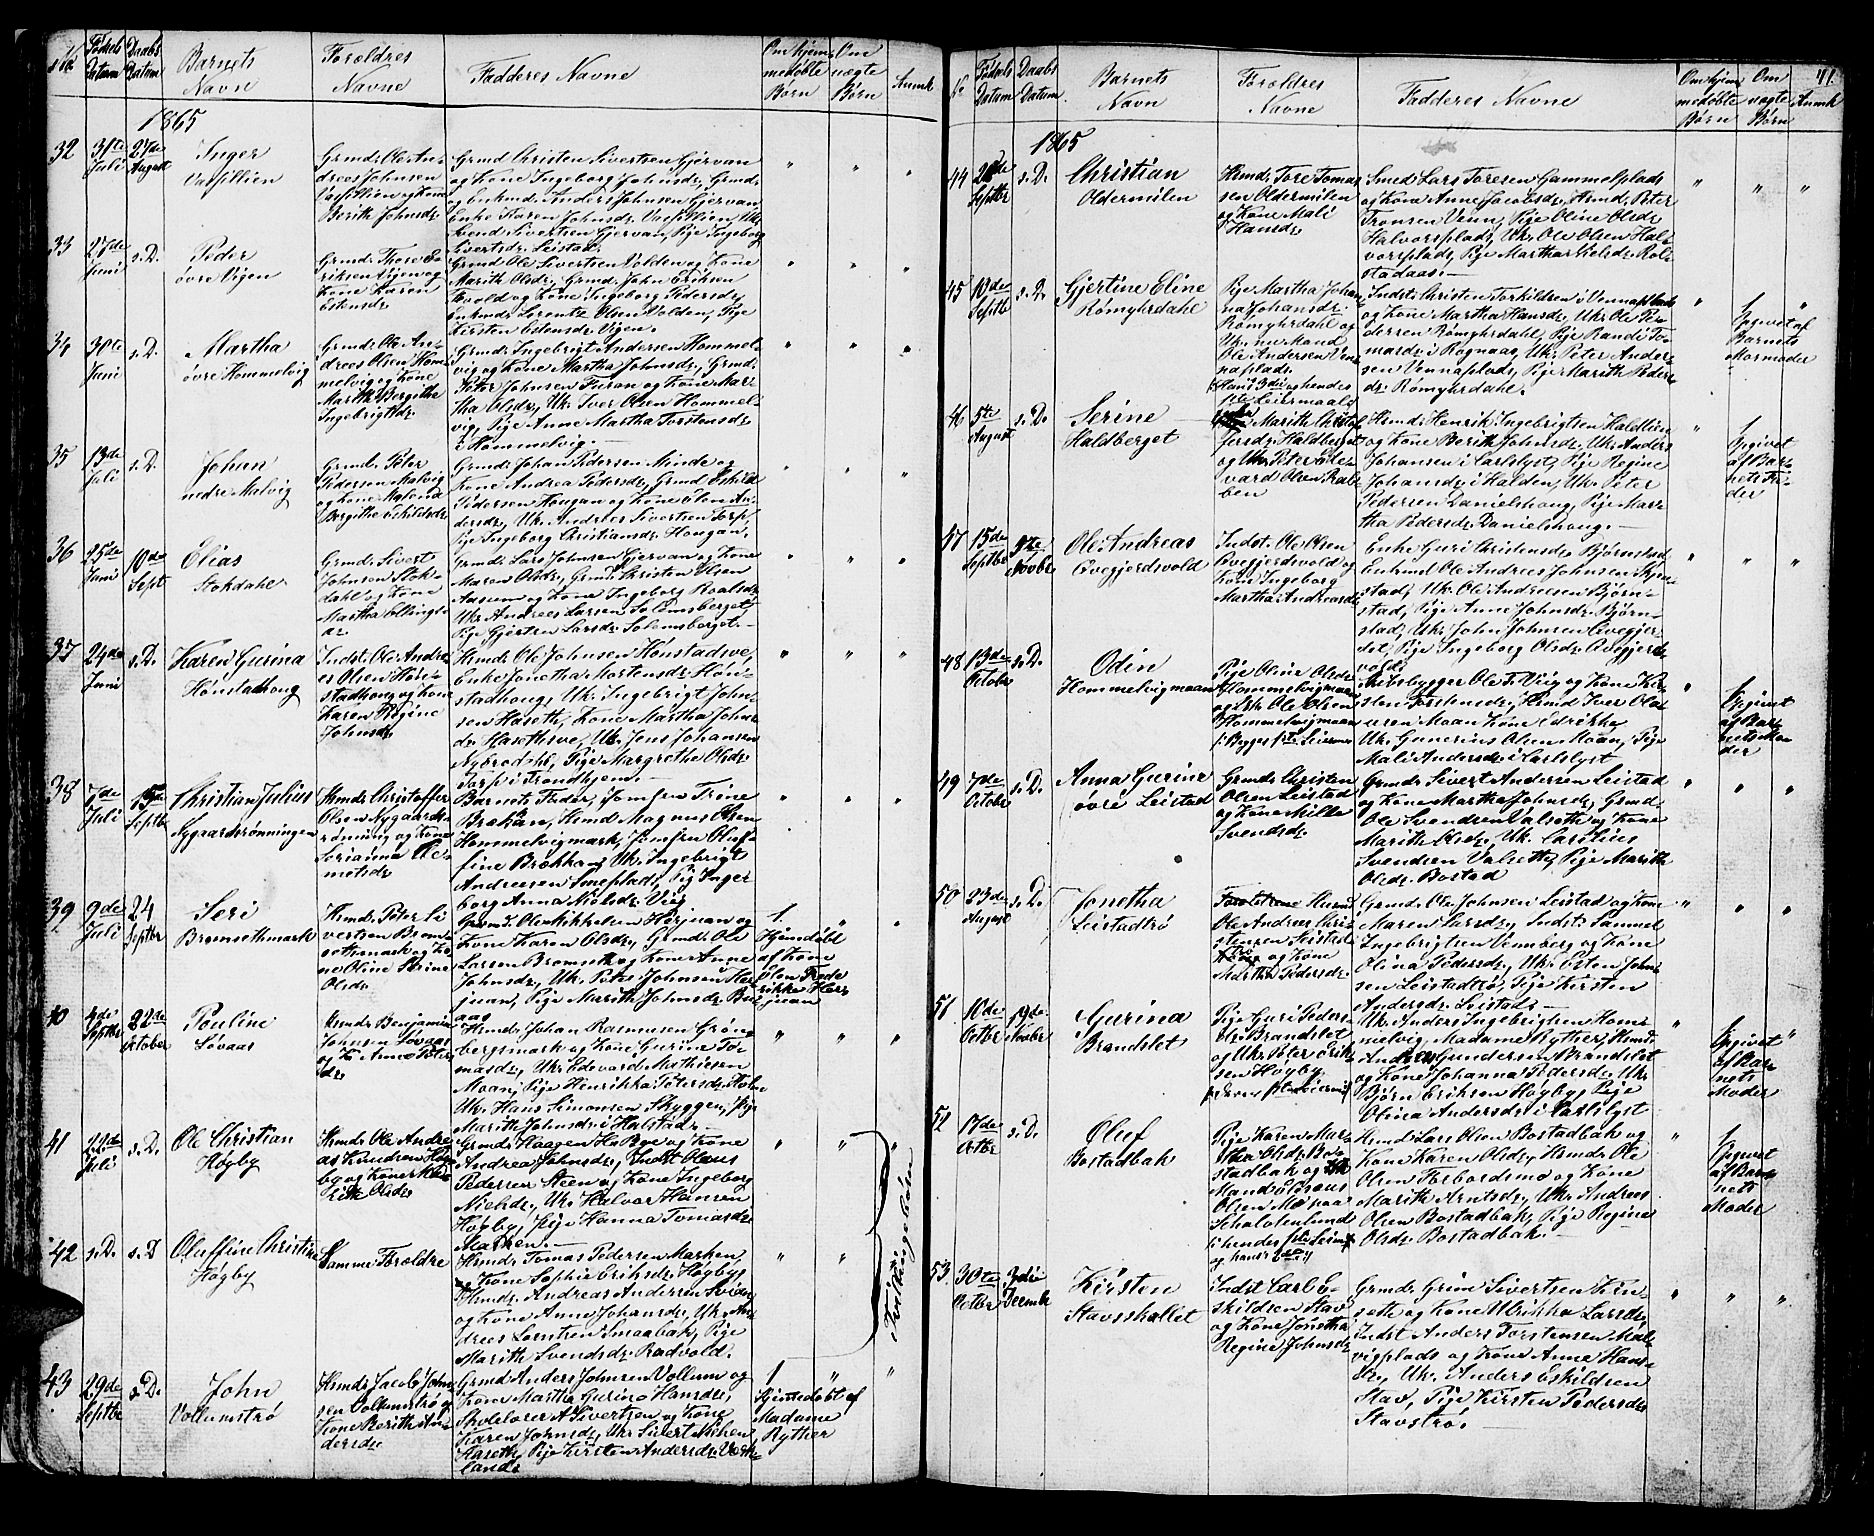 No
Fødsels Datum
Daabs Datum
Barnets Navn
Forældres Navne
Fadderes Navne
Om hjemmedøbte Børn
Om uægte Børn
Anmk
1865
32
31te Juli
27de August
Inger
Grmd: Ole An-
drees Johnsen
og Kone
Berith Johnsdr
Grmd Christen Sivertsen Gjervan
og Kone Ingeborg Johnsdr, Grmd:
og Enkmd: Anders Johnsen Gjervan
Enke Karen Johnsdr
Svend Sivertsen Gjervan, Pige Ingeborg
Sivertsdr Leistad.
33
27de Juni
s. D.
Peder
øvre Vijen
Grmd: Thore E-
riksen Vijen og
Kone Karen
Estensdr
Grmd Ole Sivertsen Volden og Kone
Marith Olsdr, Grmd: John Eriksen
og Kone Ingeborg Pedersdr,
Enkmd: Lorentz Olsen Volden, Pige
Kirsten Estensdr Vijen.
34
30te Juni
s. D.
Martha
øvre Hommelvig
Grmd: Ole An-
drees Olsen Hom-
melvig og Kone
Martha Bergitha
Ingebrigtsdr
Grmd: Ingebrigt Andersen Hommel-
vig og Kone Martha Johnsdr, Grmd:
Peter Johnsen og Kone Mar-
tha Olsdr, Uk: Iver Olsen Hommel-
vig, Pige Anne Martha Torstensdr
i Hommelvig.
35
13de Juli
s. D.
Johan
nedre Malvig
Grmd: Peter
Pedersen Malvig
og Kone Malena
Bergitha Eskildsdr
Grmd: Johan Pedersen Minde og
Kone Andrea Pedersdr, Grmd Eskild
Pedersen Hougan og Kone Elen An-
dersdr, Uk: Andreas Sivertsen Torp
Pige Ingeborg Christiansdr Hougan.
36
25de Juni
10de Sept
Elias
Stokdahl
Grmd: Sivert
Johnsen Stok-
dahl og Kone
Martha Ellings-
dr
Grmd: Lars Johnsen Gjervan og Kone
Maren Olsdr, Grmd: Christen Olsen
Aasum og Kone Ingeborg Roalsdr
Uk: Andreas Larsen Solemsberget,
Pige Gjertru Larsdr Solemsberget.
37
24de Juni
s. D.
Karen Gurina
Hønstadhoug
Indst: Ole Andre-
as Olsen Høn-
stadhoug og Kone
Karen Regine
Johnsdr
Hmd: Ole Johnsen Hønstadsve,
Enke Jonetha Mortensdr Høn-
stadhoug, Uk: Ingebrigt John-
sen Haseth, Kone Martha Johns-
dr Hasethsve, Uk: Jens Johansen
Pige Margrethe Olsdr
Torp i Trondhjem.
38
7de Juli
Septbr
Christian Julius
Nygaardsrønningen
Hmd: Christoffer
Olsen Nygaards-
rønning og Kone
Serianna Cle-
metsdr
Barnets Fader, Jomfru Trine
Brækken, Hmd Magnus Olsen
Hommelvigmark, Jomfru Oluf-
fine Brækken, Uk: Ingebrigt
Andreasen Smeplads, Pig Inger
borg Anna Nielsdr Viig
39
9de Juli
24 Septbr
Seri
Bromsethmark
Hmd: Peter Si-
vertsen Brom-
sethmark og Ko-
ne Oline Serine
Olsdr
Grmd: Ole Mikkelsen Herjuan og
Kone Karen Olsdr, Grmd: Ole
Larsen Bromseth og Kone Anne
Johnsdr, Uk: Peter Johnsen Her-
juan, Pige Marith Johnsdr
1.
Hjemdøbt
af Kone
Elen Frede
rikke Her-
juan
40
4de Septbr
22de October
Pouline
Sovaas
Hmd: Benjamin
Johnsen Sovaas
og K: Anne Peters-
dr
Hmd: Johan Rasmusen Grøn-
bergsmark og Kone Gurine To-
masdr, Uk: Edevard Mathiesen
Moan, Pige Henrikka Petersdr
Uk: Hans Simonsen Skyggen, Pige
Marith Johnsdr i Halstad.
41
22de Juli
s. D.
Ole Christian
Høgby
Hmd: Ole Andre-
as Knudsen Høg-
by og Kone Mar-
rith Olsdr
Grmd: Haagen H: Bye og Kone
Andrea Johnsdr, Indst Olaus
Pedersen Steen og Kone Ingeborg
Nielsdr, Uk: Halvor Hansen
Høgby, Pige Hanna Tomasdr
Marken.
Tvillingebørn
42
s. D.
s. D
Oluffine Christine
Høgby
Samme Forældre
Hmd: Tomas Pedersen Marken
og Kone Sophie Eriksdr Høgby
Hmd: Andreas Andersen
og Kone Anne Johansdr, Uk: An-
dreas Lorntsen Smaabak, Pige
Marith Svendsdr Rødvold.
43
29de Septbr
s. D.
John
Vollumstrø
Hmd: Jacob John-
sen Vollumstrø og
Kone Berith An-
dersdr
Grmd Anders Johnsen Vollum og
Kone Martha Gurine Hansdr,
Skolelærer A Sivertsen og Kone
Karen Johnsdr, Uk: Sivert Nilsen
Haseth, Pige Kirsten Andersdr
1
Hjemmedøbt af
Madame
Ryther
41.
No
Fødsels Datum
Daabs Datum.
Barnets Navn
Forældres Navne
Fadderes Navne
Om hjem medøbte Børn
Om uægte Børn
Anmk
1865
44
Septbr
s. D.
Christian
Oldermilen
Hmd: Tore Tomas-
sen Oldermilen
og Kone Mali
Hansdr
Smed Lars Toresen Gammelplads
og Kone Anne Jacobsdr, Hmd: Peter
Tronsen Venn, Pige Oline Olsdr
Halvorsplads, Uk: Ole Olsen Hal-
vorsplads, Pige Martha
45
10de Septbr
s. D.
Gjertine Eline
Rømyhrdahl
Pige Martha Johan-
na Johansdr
Rømyhrdahl og
Uk: nu Mand
Ole Andersen Ven-
naplads.
Hans 3die og hendes
1te Leiermaal
Indst: Christen Torkildsen i Vennaplads
og Kone Martha Hansdr, Uk: Ole Pe-
dersen Rømyhrdahl, Pige Randi To-
masdr i Rognaas, Uk: Peter Ander-
sen Vennaplads, Pige Marith Peders-
dr Rømyhrdahl.
Opgivet af
Barnets
Mormoder
46
5te August
s. D.
Serine
Haldberget
Marith Christof-
fersdr Haldberget
og Uk: Peter Ede-
vard Olsen Kal-
ben
Hmd: Henrik Ingebrigtsen Haldlien
og Kone Berith Johnsdr, Uk: Anders
Johansen i Carlslyst, Pige Regine
Johansdr i Halden, Uk: Peter
Pedersen Danielshoug, Pige Mar-
tha Pedersdr Danielshoug.
Opgivet
af Bar-
nets Fa-
der
47
15de Septbr
Novbr
Ole Andreas
Indst: Ole Olsen
Kone Ingeborg
Martha Andreasdr
Enke Guri Christensdr Bjørnstad
Enkmd Ole Andreas Johnsen
stad, Uk: Ole Andreasen Bjørn-
stad, Pige Anne Johnsdr Bjørn-
stad, Uk: John Johnsen
Pige Ingeborg Olsdr
48
13de Octobr
s. D.
Odin
Hommelvigmoan
Pige Oline Olsdr
Hommelvigmoan
og Uk: Ole Olsen
Hommelvigmoan
Begges 1te Leierm
Skibsbygger Ole T: Viig og Kone Kir-
sten Torstensdr, Hmd Iver Olaf-
Moan Kone Edrikke
Uk: Gunerius Olsen Moan, Pige
Mali Andersdr i Carlslyst
Opgivet
af Bar-
nets Mo-
der
49
7de Octobr
s. D.
Anna Gurine
øvre Leistad
Grmd: Christen
Olsen Leistad
og Kone Milda
Svendsdr
Grmd: Sivert Andersen Leistad
og Kone Martha Johnsdr, Grmd
Ole Svendsen Valseth og Kone
Marith Olsdr, Uk: Carolius
Svendsen Valseth, Pige Marith
Olsdr Bostad
50
23de August
s. D.
Jonetha
Leistadtrø
Husmd
Ole Andreas Chri-
stensen Leistad-
og Kone
Martha Pedersdr
Grmd: Ole Johnsen Leistad og Kone
Maren Larsdr, Indst: Samuel
Ingebrigtsen Vennberg og Kone
Olina Pedersdr, Uk: Esten John-
sen Leistadtrø, Pige Kirsten
Andersdr Leistad.
51
10de Octbr
19de Novbr
Gurina
Brandslet
Pige Guri Peders-
dr Brandslet
og Uk: Peter Erik-
sen Høgby.
Uk: Anders Ingebrigtsen Hom-
melvig, Madame Ryther, Hmd:
Anders Gundersen Brandslet
og Kone Johanna Pedersdr, Uk:
Bjørn Eriksen Høgby, Pige
Olina Andersdr i Carlslyst
Opgivet
af Bar-
nets
Moder
52
17de Octbr
s. D.
Oluf
Bostadbak
Pige Karen Mar-
tha Olsdr Bo-
stadbak og
Mand Edvaus
Olsen Moe paa
Schalvolenlund
hendes 1te Leierm
og hans 2den
Hmd Lars Olsen Bostadbak og
Kone Karen Olsdr, Hmd: Ole
Olsen Forbordsmo og Kone
Marith Arntsdr, Uk: Andreas
Olsen Bostadbak, Pige Regine
Olsdr Bostadbak.
Opgivet
af Bar-
nets
Moder
53
30te Octbr
3die Decembr
Kirsten
Stavshallet
Indst Carl E-
skildsen Stav
og Kone Jonetha
Regine Johnsdr
Grmd: Grim Sivertsen
og Kone Ulrikka Larsdr,
Indst Anders Torstensen Mal-
vigplads og Kone Anne Hans-
dr, Uk: Anders Eskildsen
Stav, Pige Kirsten Pedersdr
Stavstrø.